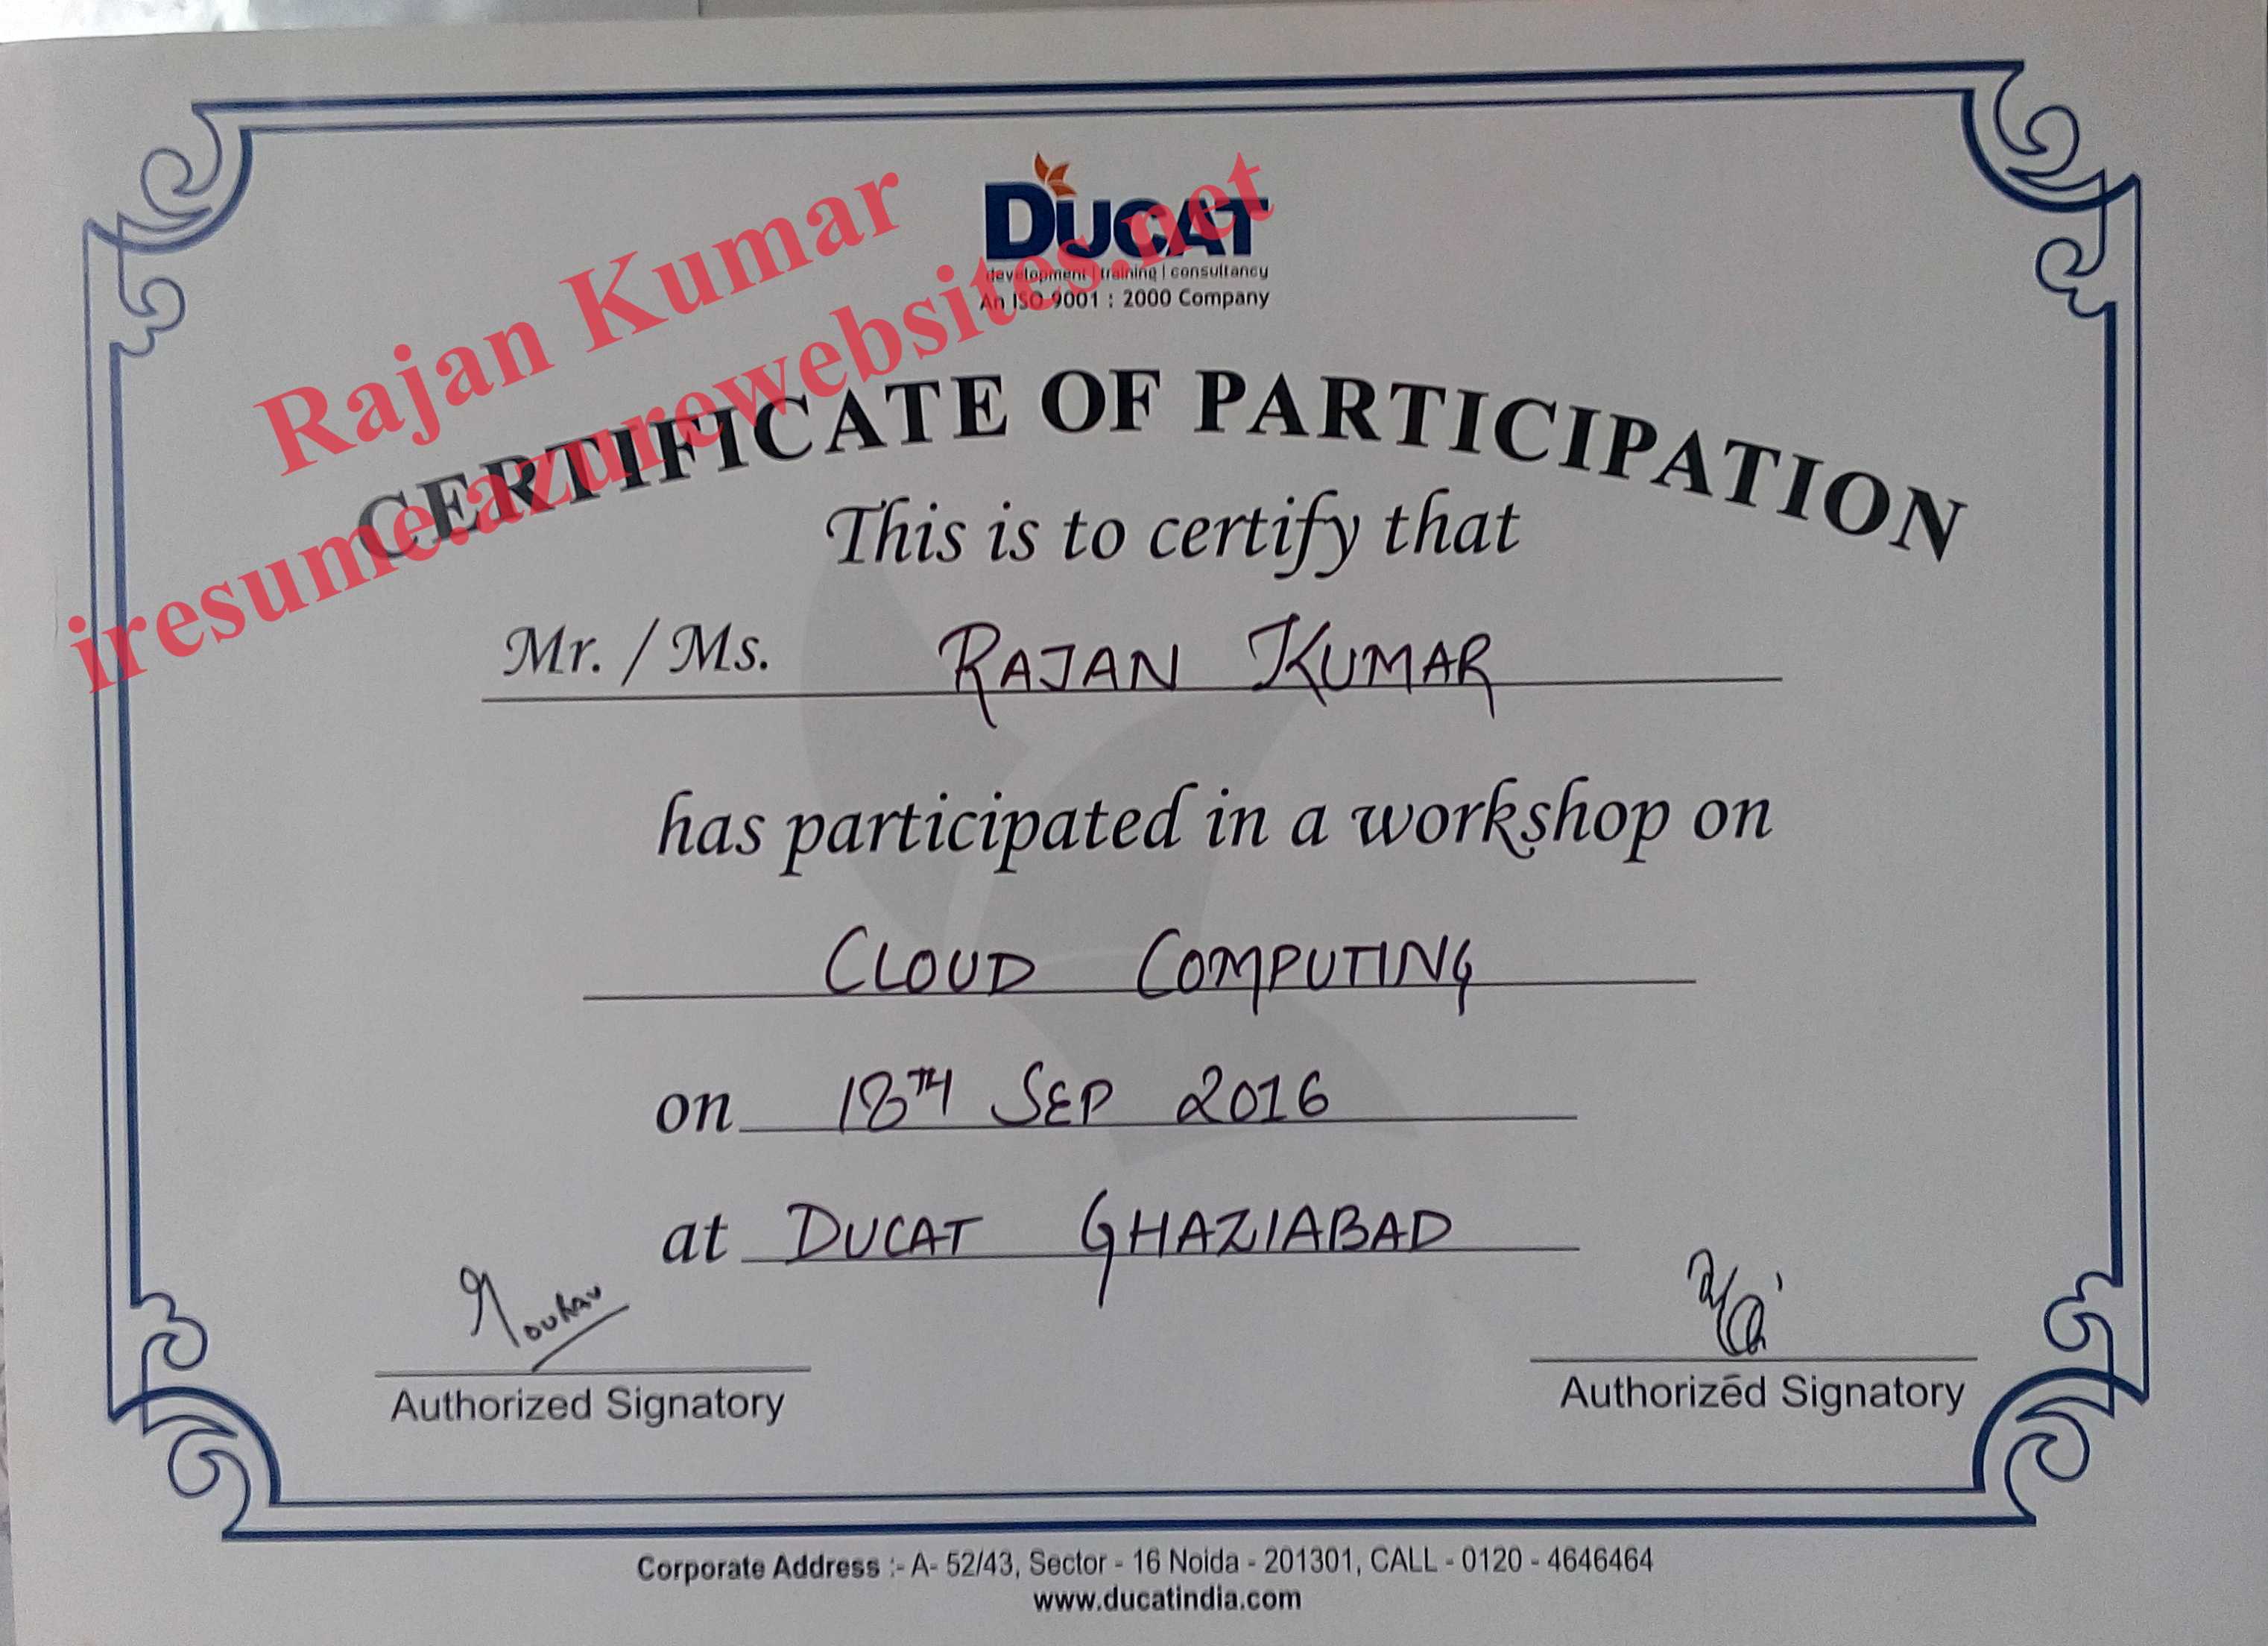 Rajan Kumar
iresume.azurewebsites.net
DUCAT
development | training | consultancy
An ISO 9001 : 2000 Company
CERTIFICATE OF PARTICIPATION
This is to certify that
Mr. / Ms. RAJAN KUMAR
has participated in a workshop on
CLOUD COMPUTING
on 18TH SEP 2016
at DUCAT GHAZIABAD
Authorized Signatory Authorized Signatory
Corporate Address :- A- 52/43, Sector - 16 Noida - 201301, CALL - 0120 - 4646464
www.ducatindia.com